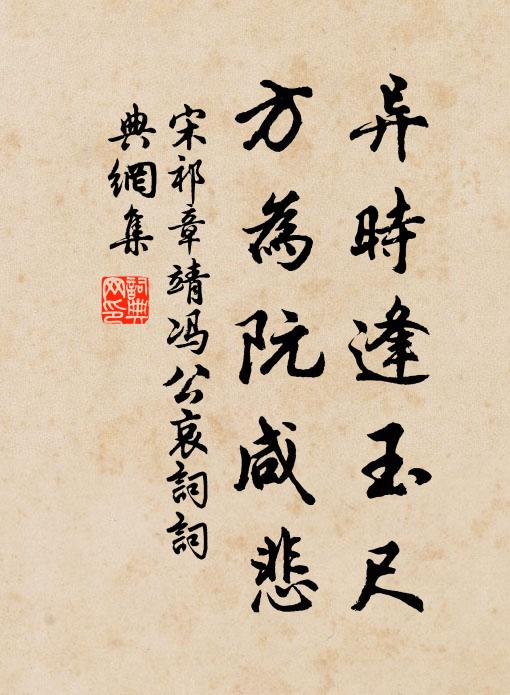 异時逢玉尺
方為阮咸悲
宋祁章靖冯公哀詞詞
典網集
詞典網印